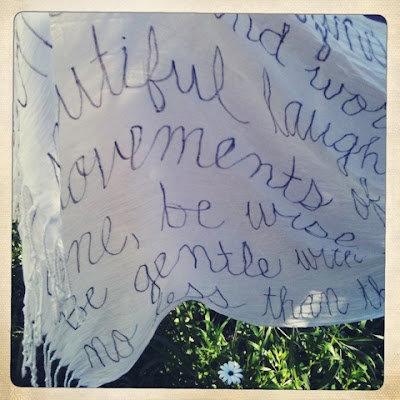 nd wor
utiful laugh
ovements of
ine, be wise
Be gentle with
no less than th